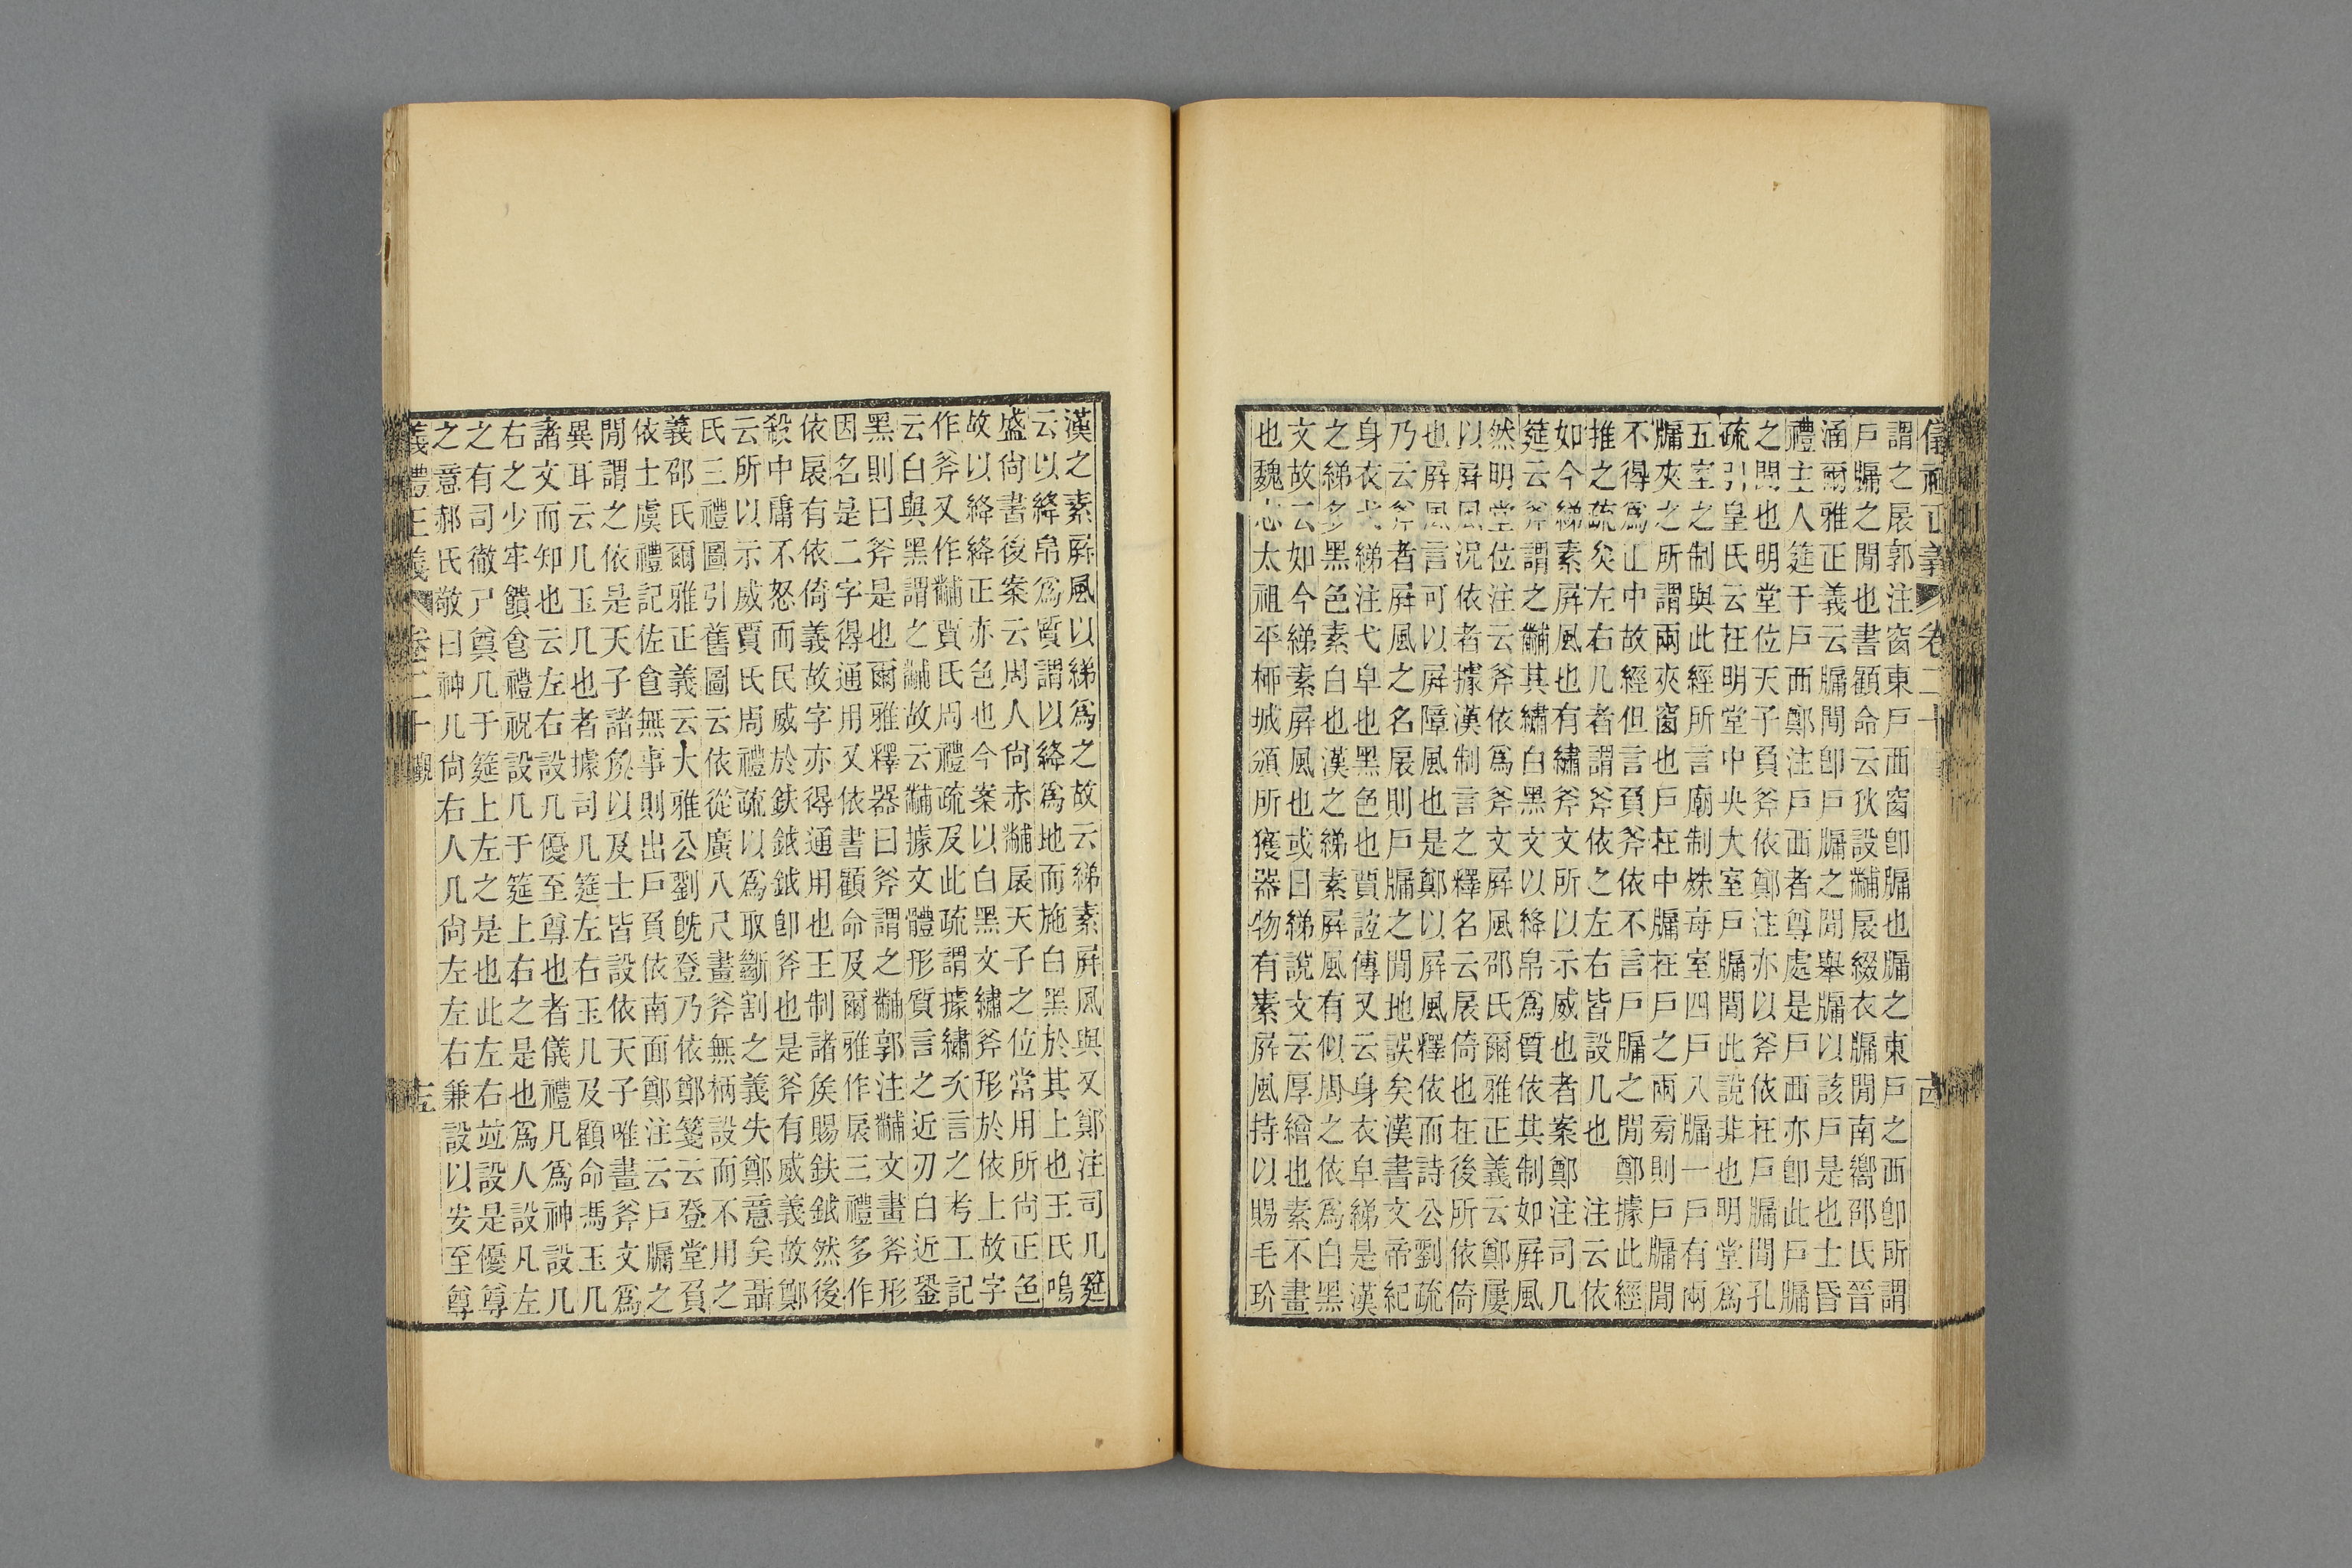 儀禮正義 卷二十 古
謂之扆郭注窗東戶西窗卽牖也牖之東戶之西卽所謂
戶牖之閒也書顧命云狄設黼扆綴衣牖閒南嚮邵氏晉
涵爾雅正義云牖閒卽戶牖之閒舉牖以該戶是也士昏
禮主人筵于戶西鄭注戶西者尊處是戶西亦卽此戶牖
之閒也明堂位天子負斧依鄭注亦以斧依在戶牖閒孔
疏引皇氏云在明堂中央大室戶牖閒此說非也明堂爲
五室之制與此經所言廟制殊每室四戶八牖一戶有兩
牖夾之所謂兩夾窗也戶在中牖在戶之兩旁則戶牖閒
不得爲正中故經但言負斧依不言戶牖之閒鄭據此經
推之疏矣左右几者謂斧依之左右皆設几也 注云依
如今綈素屛風也有繡斧文所以示威也者案鄭注司几
筵云斧謂之黼其繡白黑文以絳帛爲質依其制如屛風
然明堂位注云斧依爲斧文屛風邵氏爾雅正義云鄭屢
以屛風況依者據漢制言之釋名云扆倚也在後所依倚
也屛風言可以屛障風也是鄭以屛風釋依而詩公劉疏
乃云斧者屛風之名扆則戶牖之閒地誤矣漢書文帝紀
身衣弋綈注弋皁也黑色也賈誼傳又云身衣皁綈是漢
之綈多黑色素白也漢之綈素屛風有似周之依爲白黑
文故云如今綈素屛風也或曰綈說文云厚繒也素不畫
也魏志太祖平柳城頒所獲器物有素屛風持以賜毛玠
漢之素屛風以綈爲之故云綈素屛風與又鄭注司几筵
云以絳帛爲質謂以絳爲地而施白黑於其上也王氏鳴
盛尙書後案云周人尙赤黼扆天子之位當用所尙正色
故以絳絳正亦色也今案以白黑文繡斧形於依上故字
作斧又作黼賈氏周禮疏及此疏謂據繡次言之考工記
云白與黑謂之黼故云黼據文體形質言之近刃白近銎
黑則曰斧是也爾雅釋器曰斧謂之黼郭注黼文畫斧形
因名是二字得通用又依書顧命及爾雅作扆三禮多作
依扆有依倚義故字亦得通用也王制諸矦賜鈇鉞然後
殺中庸不怒而民威於鈇鉞鉞卽斧也是斧有威義故鄭
云所以示威賈氏周禮疏以爲取斷割之義失鄭意矣聶
氏三禮圖引舊圖云依從廣八尺畫斧無柄設而不用之
義邵氏爾雅正義云大雅公劉旣登乃依鄭箋云登堂負
依士虞禮記佐食無事則出戶負依南面鄭注云戶牖之
閒謂之依是天子諸矦以及士皆設依天子唯畫斧文爲
異耳云几玉几也者據司几筵左右玉几及顧命馮玉几
諸文而知也云左右設几優至尊也者儀禮凡爲神設几
右之少牢饋食禮祝設几于筵上右之是也爲人設凡左
之有司徹尸奠几于筵上左之是也此左右並設是優尊
之意郝氏敬曰神几尙右人几尙左左右兼設以安至尊
義禮正義 卷二十 觀 左